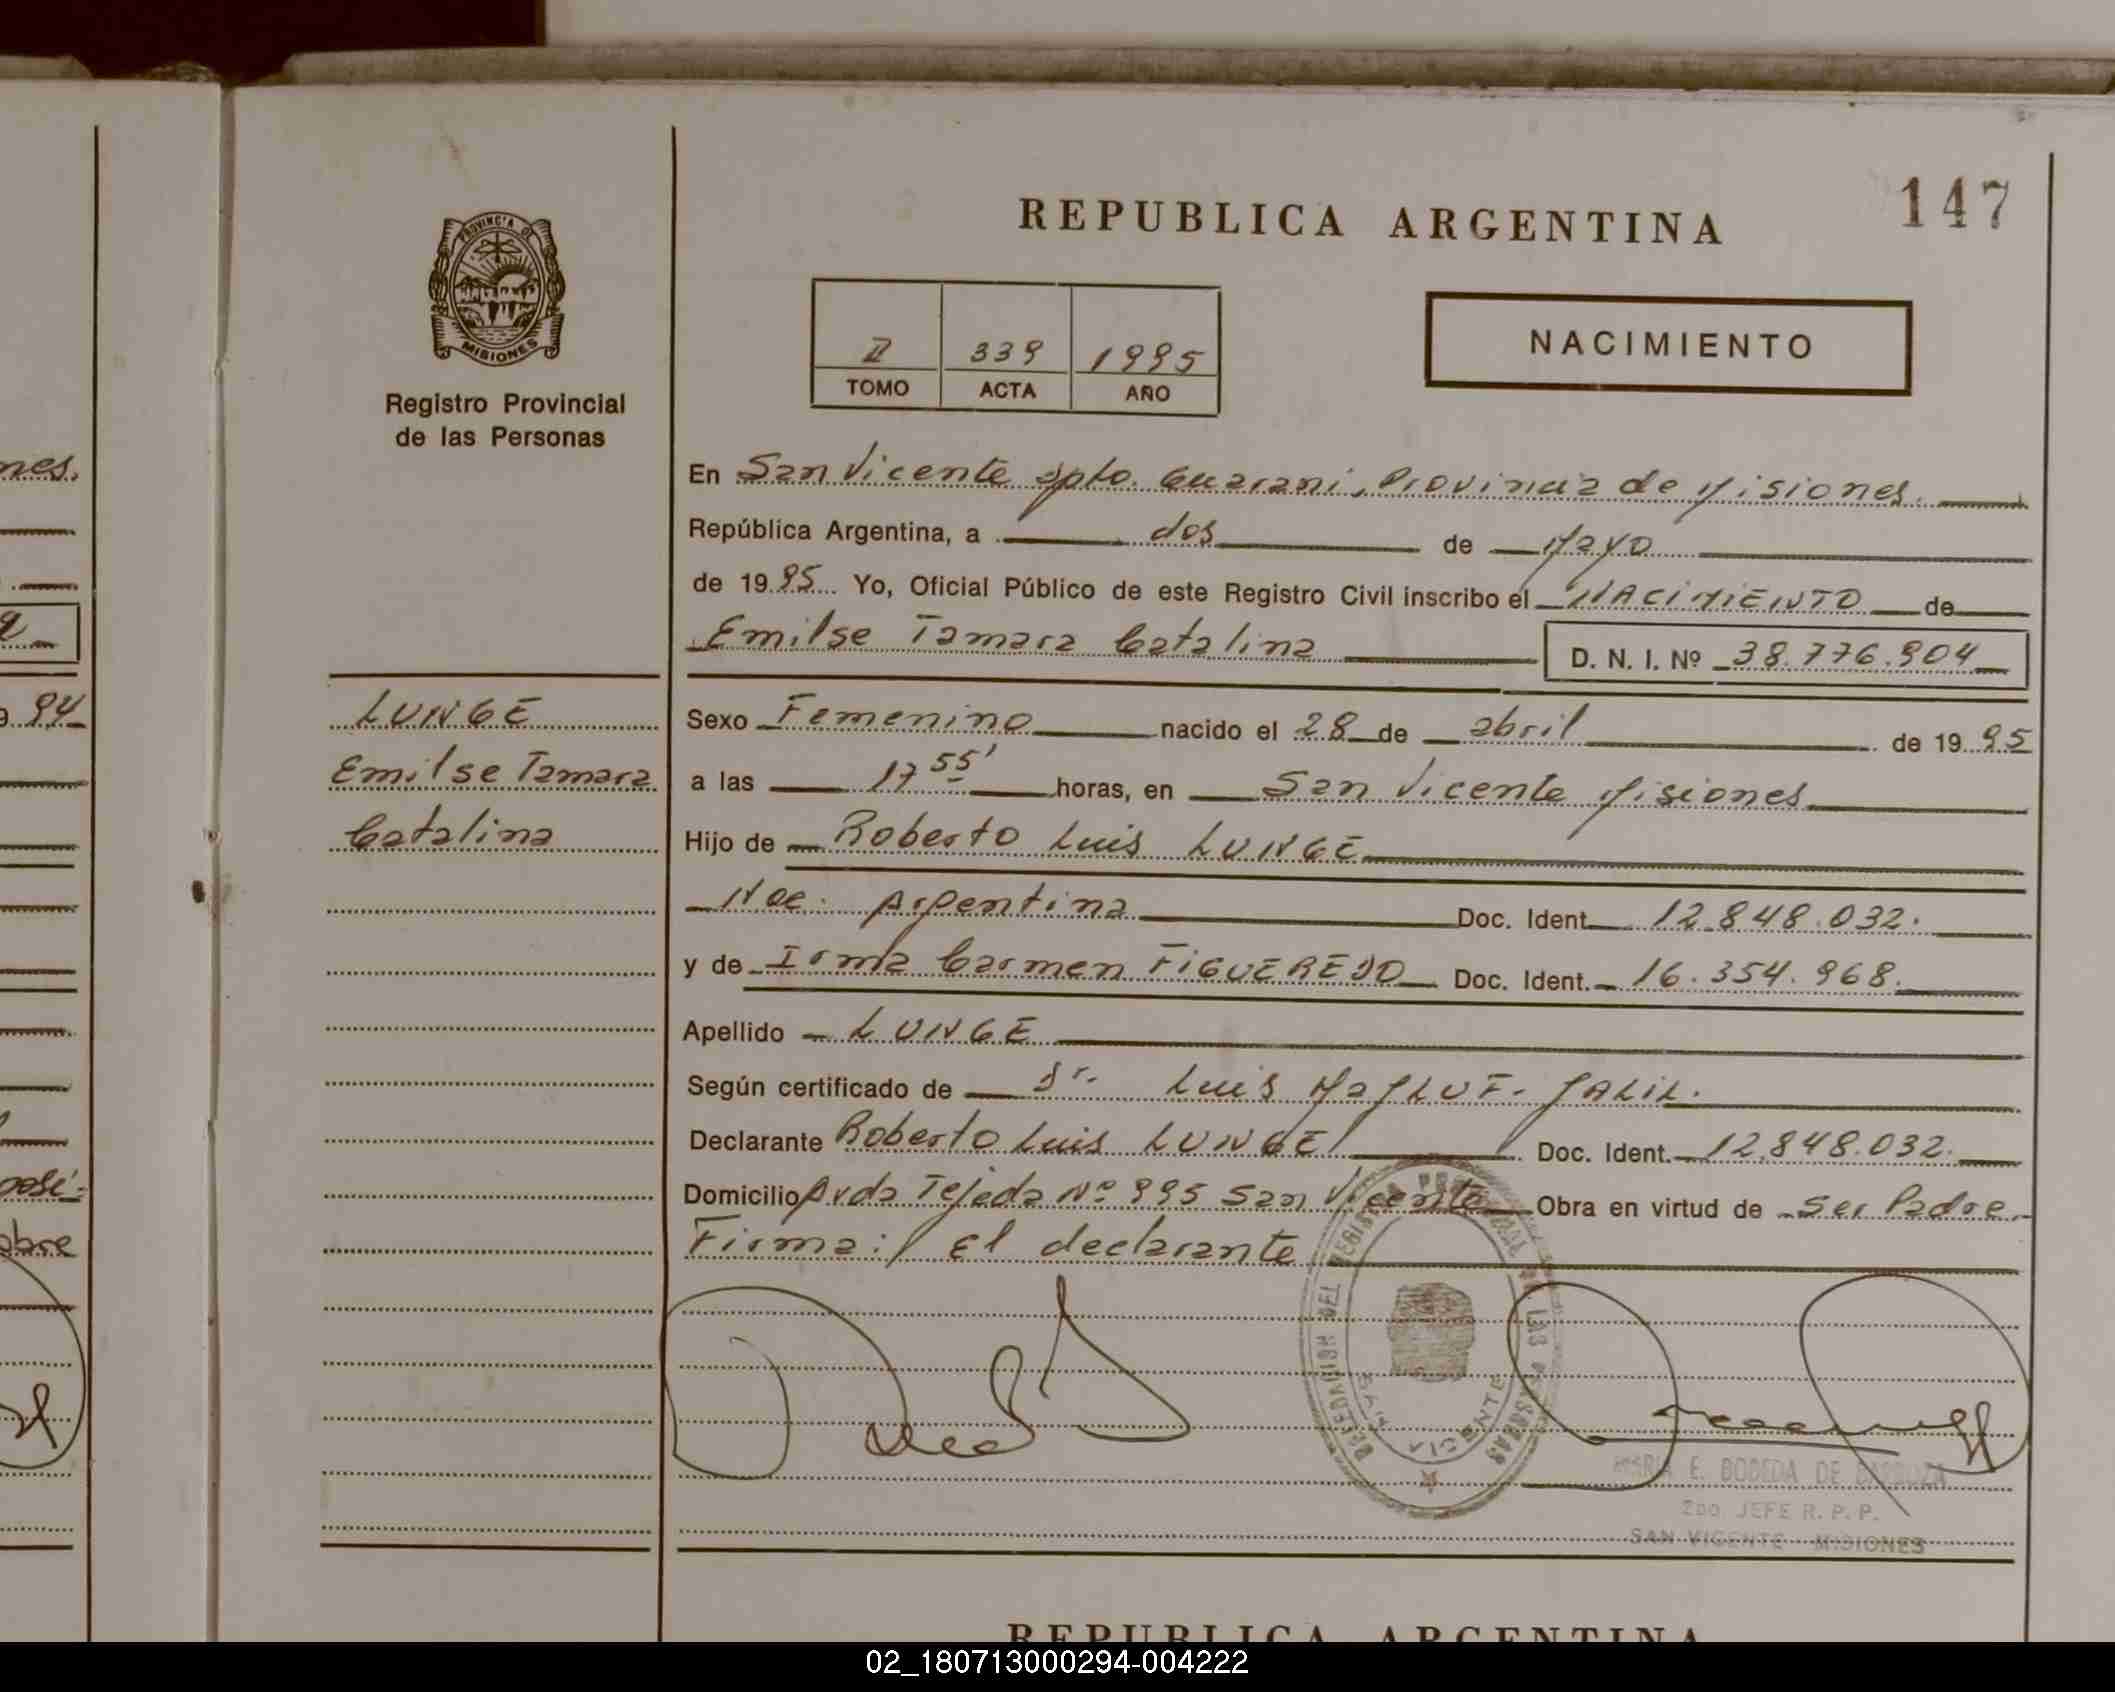 147
REPUBLICA ARGENTINA
PROVINCIA D
MISIONES
Registro Provincial
de las Personas
II 339 1995
TOMO ACTA AÑO
NACIMIENTO
En San Vicente Dpto. Guarani, Provincia de Misiones.
República Argentina, a dos de Mayo
de 1995 Yo, Oficial Público de este Registro Civil inscribo el NACIMIENTO de
Emilse Tamara Catalina D. N. I. Nº 38.776.904
LUNGE
Emilse Tamara
Catalina
Sexo Femenino nacido el 28 de abril de 1995
a las 17 55' horas, en San Vicente Misiones
Hijo de Roberto Luis LUNGE
Nac. Argentina Doc. Ident. 12.848.032.
y de Irma Carmen FIGUEREDO Doc. Ident. 16.354.968.
Apellido LUNGE
Según certificado de Dr. Luis
Declarante Roberto Luis LUNGE Doc. Ident. 12.848.032.
Domicilio Avda Tejeda Nº 995 San Vicente Obra en virtud de Ser Padre.
Firma: El declarante
DELEGACION DEL REGISTRO PROVINCIAL DE LAS PERSONAS
SAN VICENTE
MARIA E. BOBEDA DE BARBOZA
2DO JEFE R. P. P.
SAN VICENTE MISIONES
nes.
94
abre
REPUBLICA ARGENTINA
02_180713000294-004222